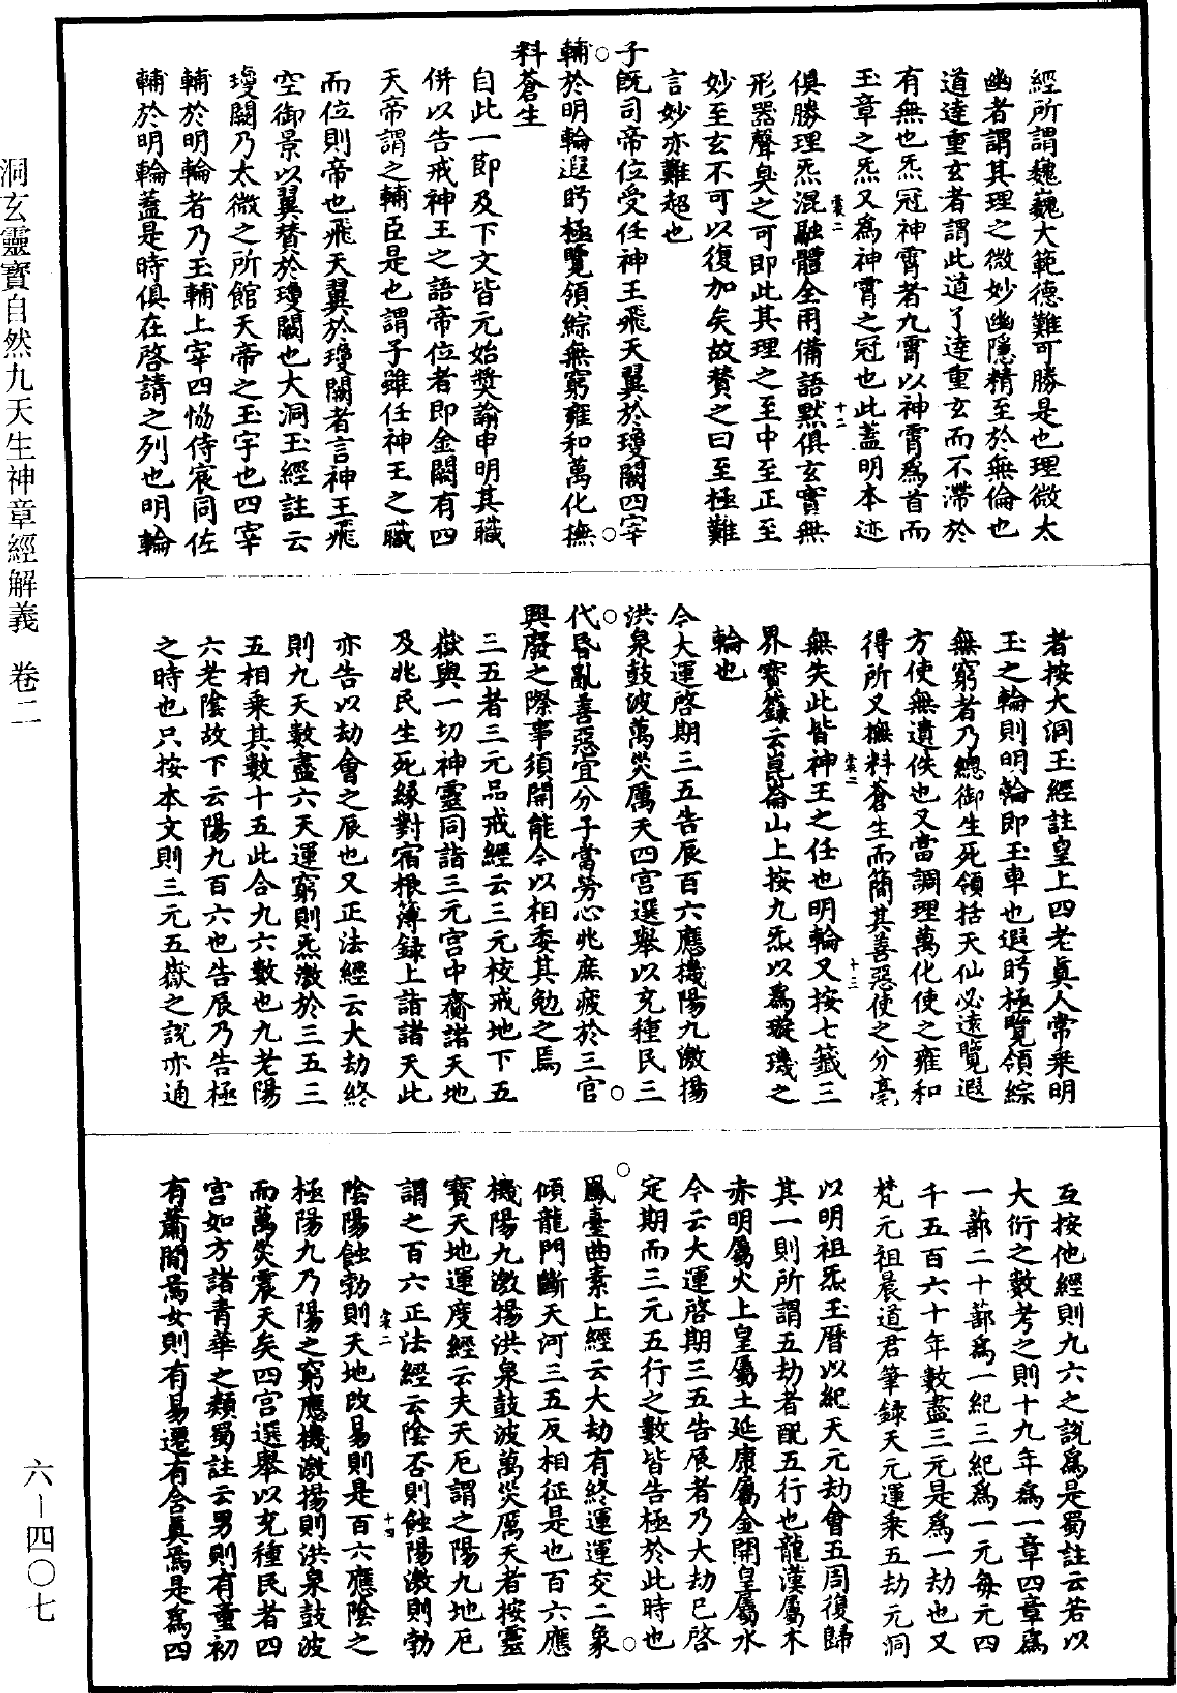 經所謂巍巍大範德難可勝是也理微太
幽者謂其理之微妙幽隱精至於無倫也
道達重玄者謂此道了達重玄而不滯於
有無也炁冠神霄者九霄以神霄爲首而
玉章之炁又爲神霄之冠也此蓋明本迹
俱勝理炁混融體全用備語默俱玄實無
形器聲臭之可即此其理之至中至正至
妙至玄不可以復加矣故賛之曰至極難
言妙亦難超也
子既司帝位受任神王飛天翼於瓊闕四宰
輔於明輪遐眄極覽領綜無窮雍和萬化撫
料蒼生
自此一節及下文皆元始獎諭申明其職
併以告戒神王之語帝位者即金闕有四
天帝謂之輔臣是也謂子雖任神王之職
而位則帝也飛天翼於瓊闕者言神王飛
空御景以翼賛於瓊闕也大洞玉經註云
瓊闕乃太微之所館天帝之玉宇也四宰
輔於明輪者乃玉輔上宰四協侍宸同佐
輔於明輪蓋是時俱在啓請之列也明輪
者按大洞玉經註皇上四老眞人常乗明
玉之輪則明輪即玉車也遐眄極覽領綜
無窮者乃總御生死領括天仙必遠覽遐
方使無遺佚也又當調理萬化使之雍和
得所又撫料蒼生而簡其善惡使之分毫
無失此皆神王之任也明輪又按七籤三
界寶籙云崑崙山上按九炁以爲璇璣之
輪也
今大運啓期三五告辰百六應機陽九激揚
洪泉鼓波萬災厲天四宮選舉以充種民三
代昏亂善惡宜分子當勞心兆庶疲於三官
興廢之際事須開能今以相委其勉之焉
三五者三元品戒經云三元校戒地下五
嶽與一切神靈同詣三元宮中齎諸天地
及兆民生死緣對宿根簿録上詣諸天此
亦告以劫會之辰也又正法經云大劫終
則九天數盡六天運窮則炁激於三五三
五相乗其數十五此合九六數也九老陽
六老陰故下云陽九百六也告辰乃告極
之時也只按本文則三元五嶽之説亦通
互按他經則九六之説爲是蜀註云若以
大衍之數考之則十九年爲一章四章爲
一蔀二十蔀爲一紀三紀爲一元每元四
千五百六十年數盡三元是爲一劫也又
梵元祖晨道君筆錄天元運乗五劫元洞
以明祖炁玉暦以紀天元劫會五周復歸
其一則所謂五劫者配五行也龍漢屬木
赤明屬火上皇屬土延康屬金開皇屬水
今云大運啓期三五告辰者乃大劫已啓
定期而三元五行之數皆告極於此時也
鳳臺曲素上經云大劫有終運運交二象
傾龍門斷天河三五反相征是也百六應
機陽九激揚洪泉鼓波萬災厲天者按靈
寶天地運度經云夫天厄謂之陽九地厄
謂之百六正法經云陰否則蝕陽激則勃
陰陽蝕勃則天地改易則是百六應陰之
極陽九乃陽之窮應機激揚則洪泉鼓波
而萬災震天矣四宮選舉以充種民者四
宮如方諸青華之類蜀註云男則有童初
有蕭閒焉女則有易遷有含眞焉是爲四
洞玄靈寶自然九天生神章經解義　卷二
六—四〇七